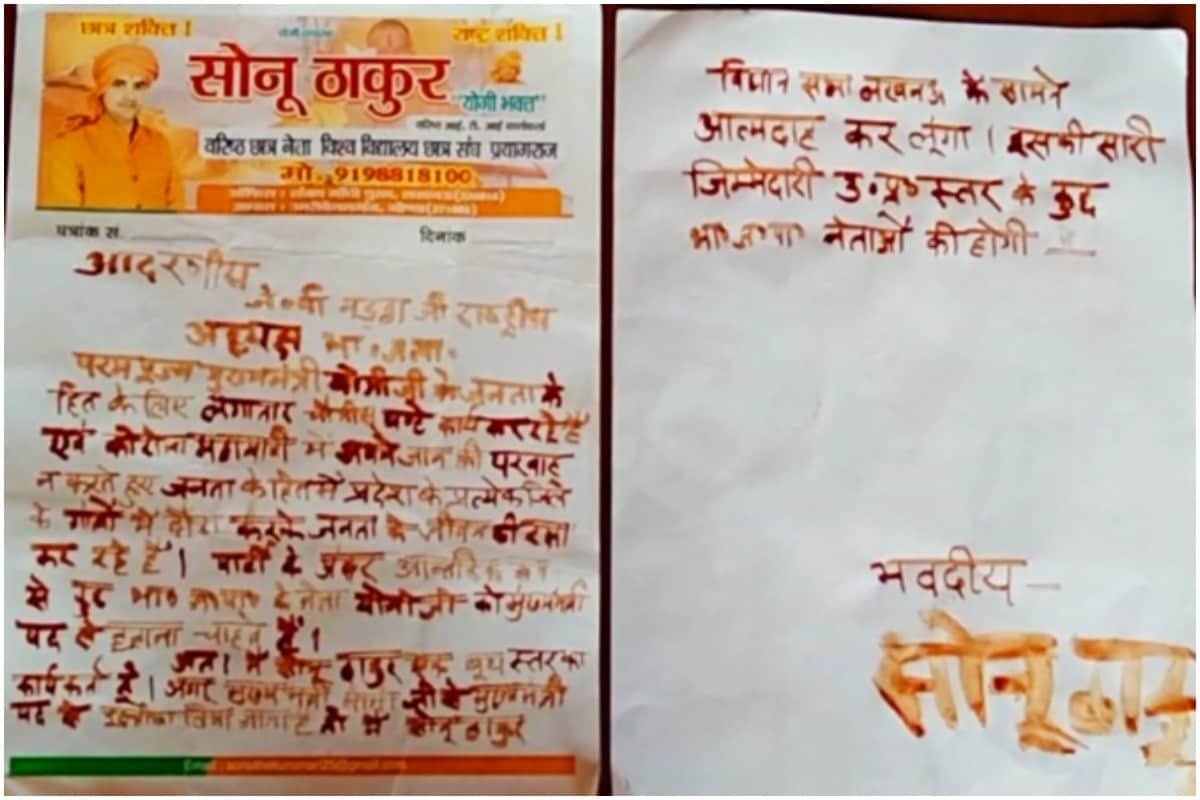 छात्र शक्ति !
राष्ट्र शक्ति !
सोनू ठाकुर
"योगी भक्त"
वरिष्ठ छात्र नेता विश्व विद्यालय छात्र संघ प्रयागराज
मो. 9198818100
पत्रांक सं.
दिनांक
आदरणीय
जे०पी नड्डा जी राष्ट्रीय
अध्यक्ष भा.ज.पा.
परम पूज्य मुख्यमंत्री योगीजी के जनता के
हित के लिए लगातार चौबीस घण्टे कार्य कर रहे हैं
एवं कोरोना महामारी में अपने जान की परवाह
न करते हुए जनता के हित में प्रदेश के प्रत्येक जिले
के गांवों में दौरा करके जनता के जीवन की रक्षा
कर रहे हैं। पार्टी के अन्दर आन्तरिक रूप
से कुछ भा० ज० पा० के नेता योगीजी को मुख्यमंत्री
पद से हटाना चाहते हैं।
अतः मैं सोनू ठाकुर एक बूथ स्तर का
कार्यकर्ता हूँ। अगर मुख्यमंत्री योगी जी से मुख्यमंत्री
पद से इस्तीफा लिया जाता है तो मैं सोनू ठाकुर
विधान सभा लखनऊ के सामने
आत्मदाह कर लूंगा। इसकी सारी
जिम्मेदारी उ०प्र० स्तर के कुछ
भा० ज० पा० नेताओं की होगी —
भवदीय —
सोनू ठाकुर